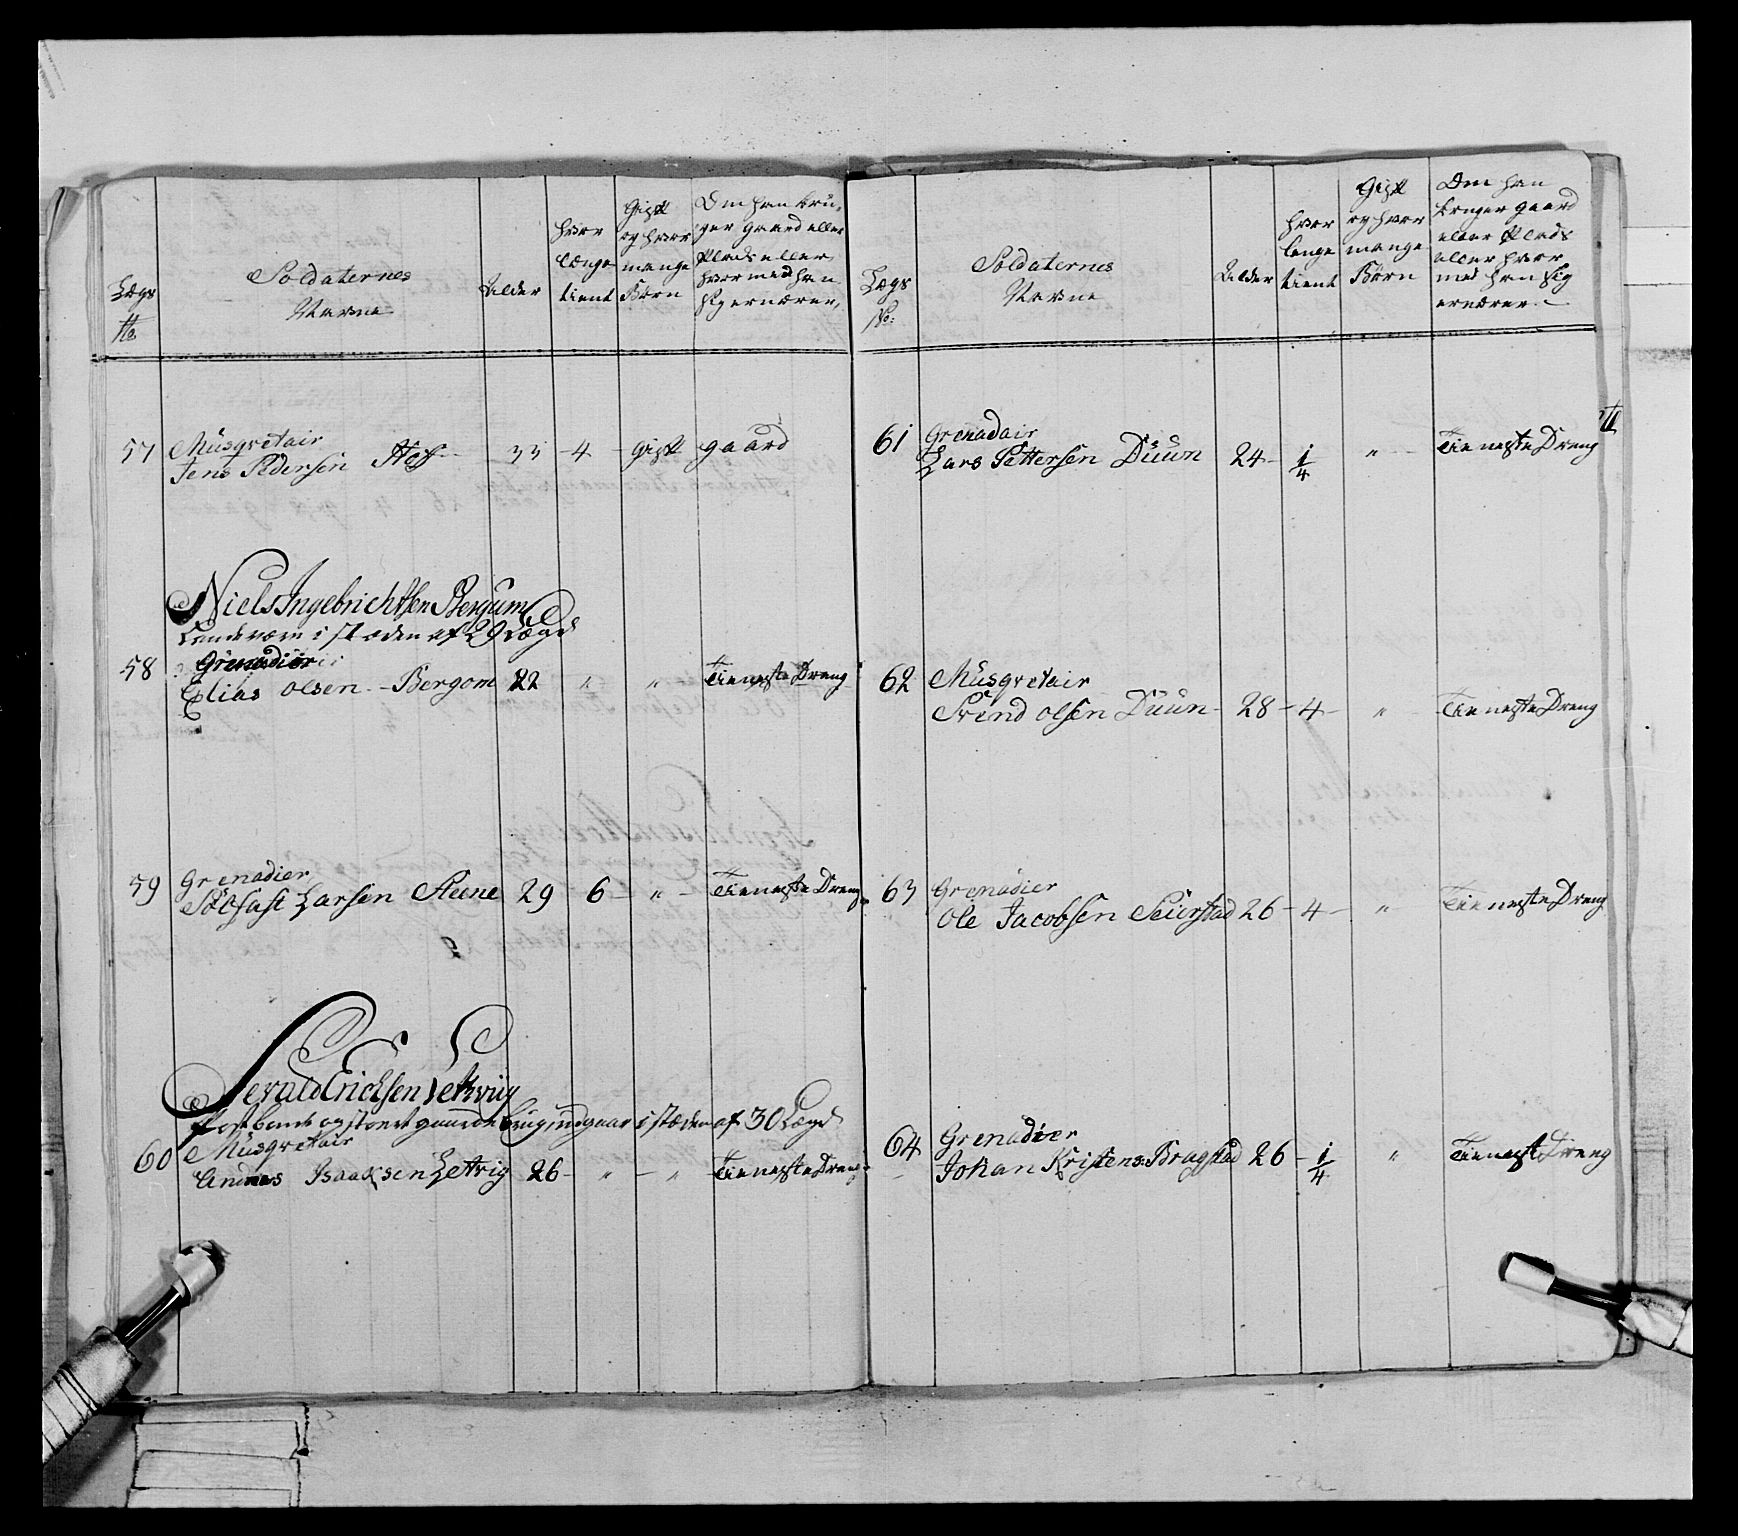 Lægs
No
Soldaternes
Navne
Alder
hvor
længe
tient
Gift
og hvor
mange
Børn
Om han bru-
ger gaard eller
Plads eller
hvormed han
sig ernærer,
57 Musqvetair
Jens Pedersen 33 - 4 - Gift gaard
Niels Ingebrichtsen Bergum
Landeværn i stæden af 29 Lægd
58 Grenadier
Elias Olsen - Bergom 22 " " Tieneste Dreng
59 Grenadier
Larsen Steene 29 6 - " - Tieneste Dreng
Erichsen
i stæden af 30 Lægd
60 Musqvetair
Isaaksen Letvig 26 - " - " - Tieneste Dreng
Lægs
No:
Soldaternes
Navne
Alder
hvor
længe
tient
Gift
og hvor
mange
Børn
Om han
bruger gaard
eller Plads
eller hvor
med han sig
ernærer. -
61 Grenadair
Lars Pettersen Duun 24 - 1/4 " - Tieneste Dreng
62 Musqvetair
Svend Olsen Duun - 28 - 4 - " Tieneste Dreng
63 Grenadier
Ole Jacobsen Seierstad 26 - 4 - " Tieneste Dreng
64 Grenadier
Johan Kristens: Bragstad 26 - 1/4 " Tienest Dreng